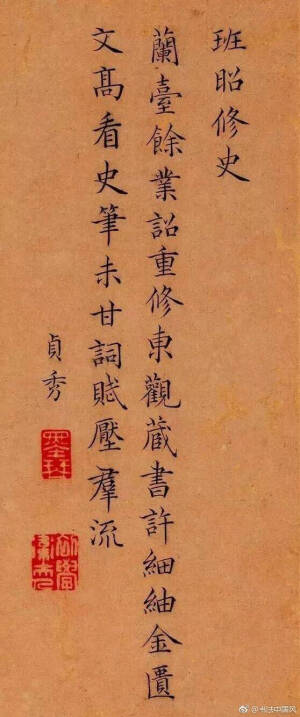 班昭修史
蘭臺餘業詔重修東觀藏書許細紬金匱
文高看史筆未甘詞賦壓羣流
貞秀
@书法中国风